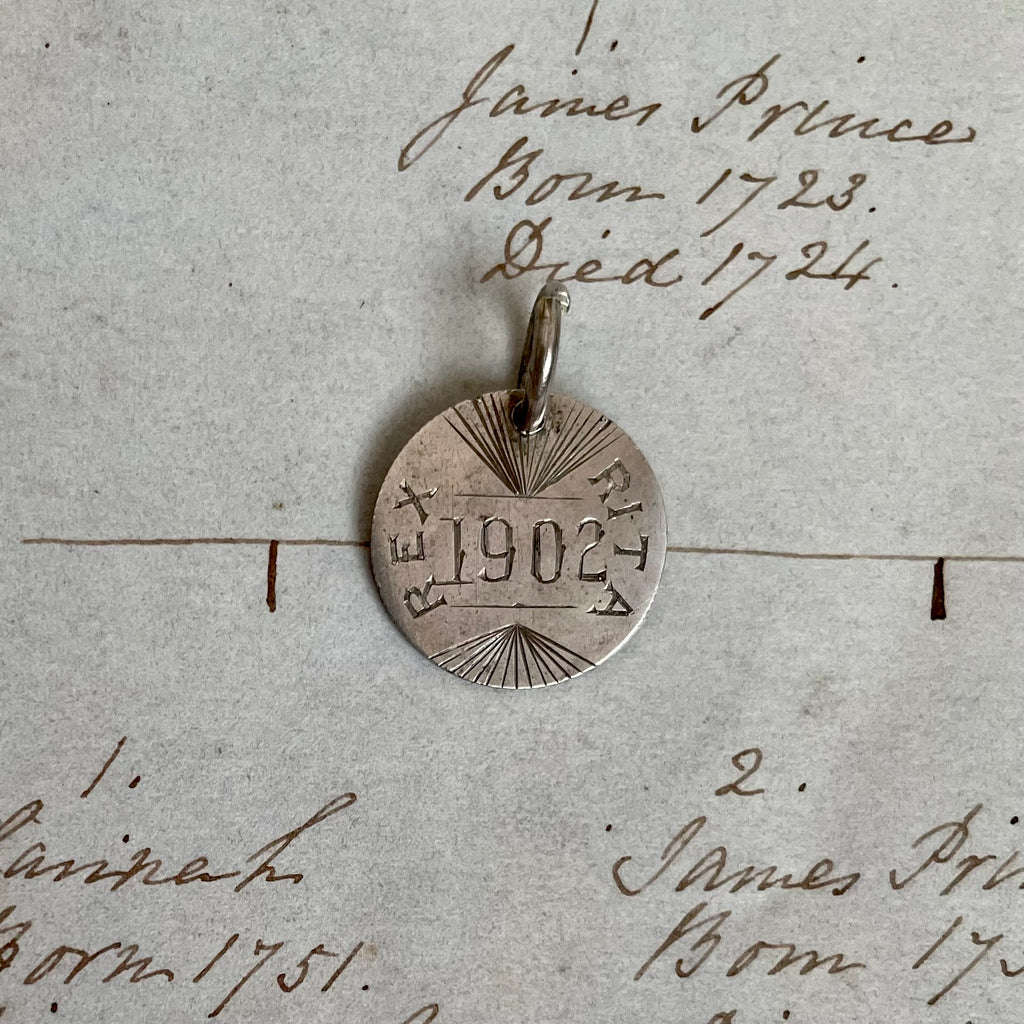 1.
James Prince
Born 1723.
Died 1724.
REX
1902
RITA
1.
Hannah
Born 1751.
2.
James Prin
Born 175